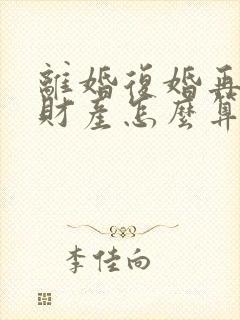 離婚復婚再
財產怎麼算
李佳向